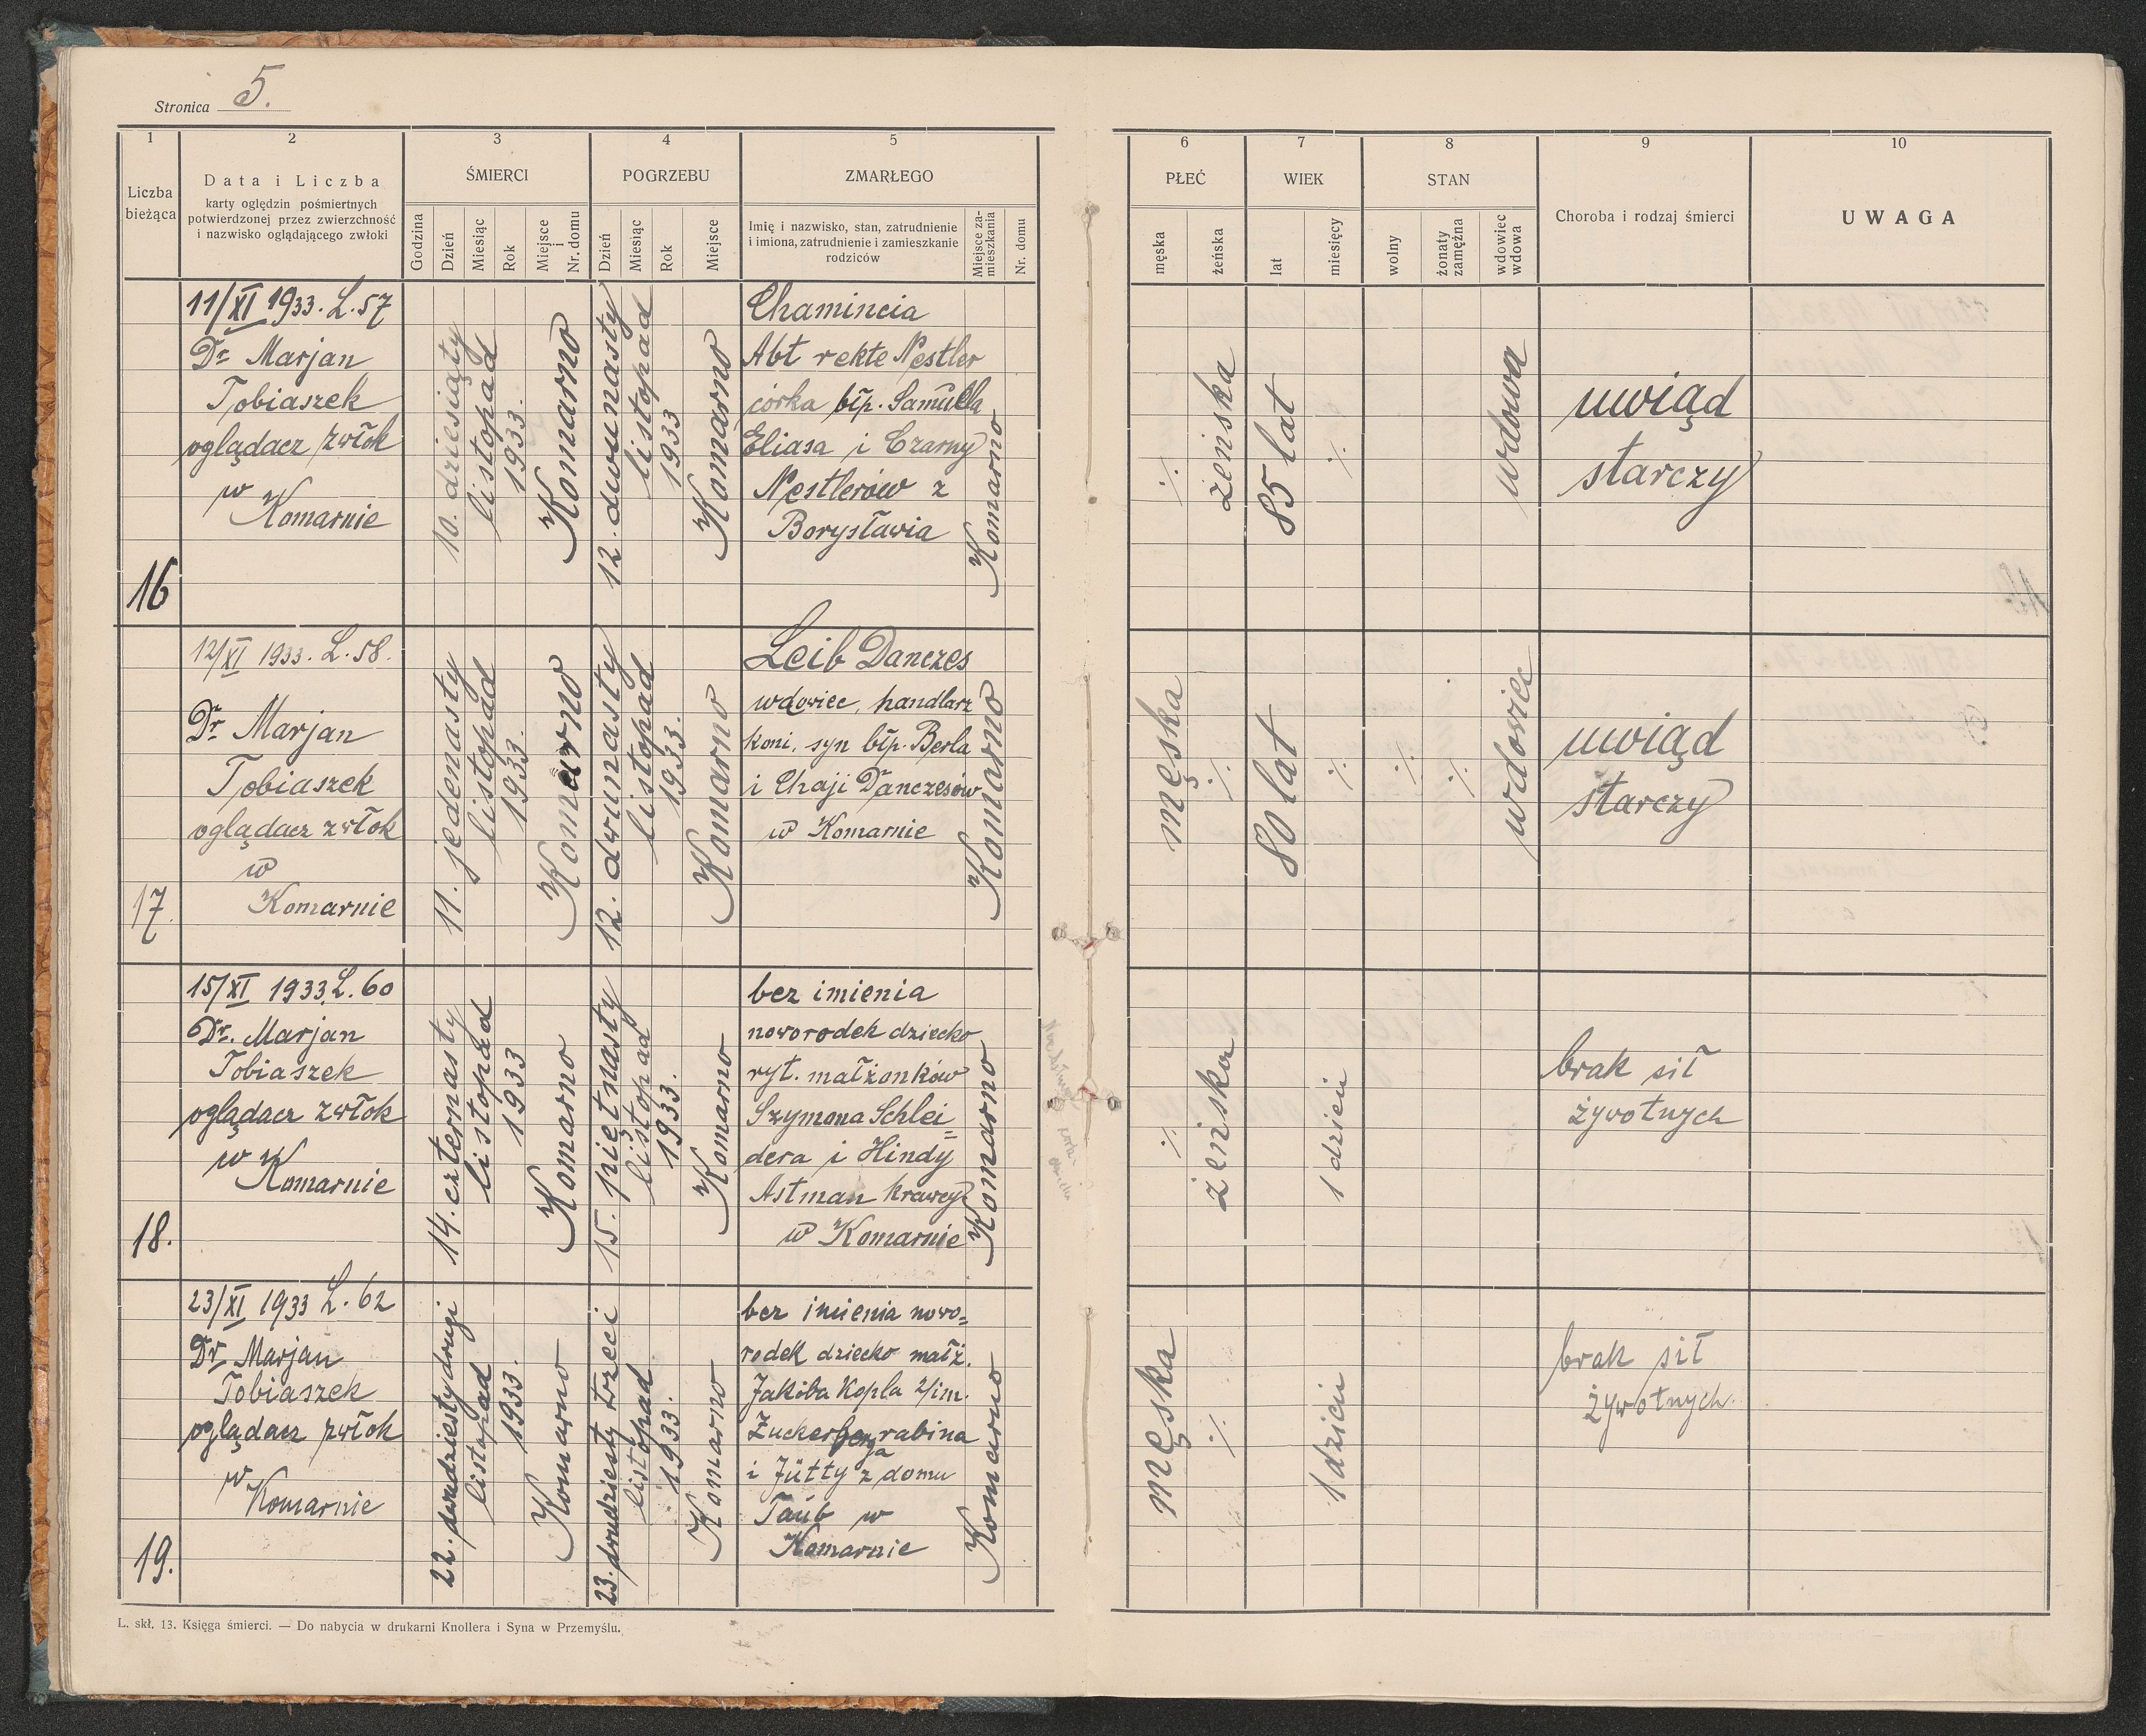 Stronica 5.
1
2
3
4
5
6
7
8
9
10
Liczba
bieżąca
Data i Liczba
karty oględzin pośmiertnych
potwierdzonej przez zwierzchność
i nazwisko oglądającego zwłoki
ŚMIERCI
Godzina
Dzień
Miesiąc
Rok
Miejsce
i
Nr. domu
POGRZEBU
Dzień
Miesiąc
Rok
Miejsce
ZMARŁEGO
Imię i nazwisko, stan, zatrudnienie
i imiona, zatrudnienie i zamieszkanie
rodziców
Miejsce za-
mieszkania
Nr. domu
PŁEĆ
męska
żeńska
WIEK
lat
miesięcy
STAN
wolny
żonaty
zamężna
wdowiec
wdowa
Choroba i rodzaj śmierci
UWAGA
16
11/XI 1933. L. 57
Dr Marjan
Tobiaszek
oglądacz zwłok
w
Komarnie
10. dziesiąty
listopad
1933.
Komarno
12. dwunasty
listopad
1933
Komarno
Chamincia
Abt rekte Nestler
córka błp. Samuela
Eliasa i Czarny
Nestlerów z
Borysławia
Komarno
·/.
żeńska
85 lat
·/.
wdowa
uwiąd
starczy
17.
12/XI 1933. L. 58.
Dr Marjan
Tobiaszek
oglądacz zwłok
w
Komarnie
11. jedenasty
listopad
1933.
Komarno
12. dwunasty
listopad
1933.
Komarno
Leib Danczes
wdowiec, handlarz
koni, syn błp. Berla
i Chaji Danczesów
w Komarnie
Komarno
męska
·/.
80 lat
·/.
·/.
·/.
wdowiec
uwiąd
starczy
18.
15/XI 1933. L. 60
Dr. Marjan
Tobiaszek
oglądacz zwłok
w
Komarnie
14. czternasty
listopad
1933
Komarno
15. piętnasty
listopad
1933.
Komarno
bez imienia
noworodek dziecko
ryt. małżonków
Szymona Schlei=
dera i Hindy
Astman krawcy
w Komarnie
Komarno
·/.
żeńska
1 dzień
brak sił
żywotnych
19.
23/XI 1933 L. 62
Dr Marjan
Tobiaszek
oglądacz zwłok
w
Komarnie
22. dwudziesty drugi
listopad
1933.
Komarno
23. dwudziesty trzeci
listopad
1933.
Komarno
bez imienia nowo=
rodek dziecko małż.
Jakóba Kopla 2/im.
Zuckerberga rabina
i Jütty z domu
Taub w
Komarnie
Komarno
męska
·/.
1 dzień
brak sił
żywotnych.
L. skł. 13. Księga śmierci. — Do nabycia w drukarni Knollera i Syna w Przemyślu.